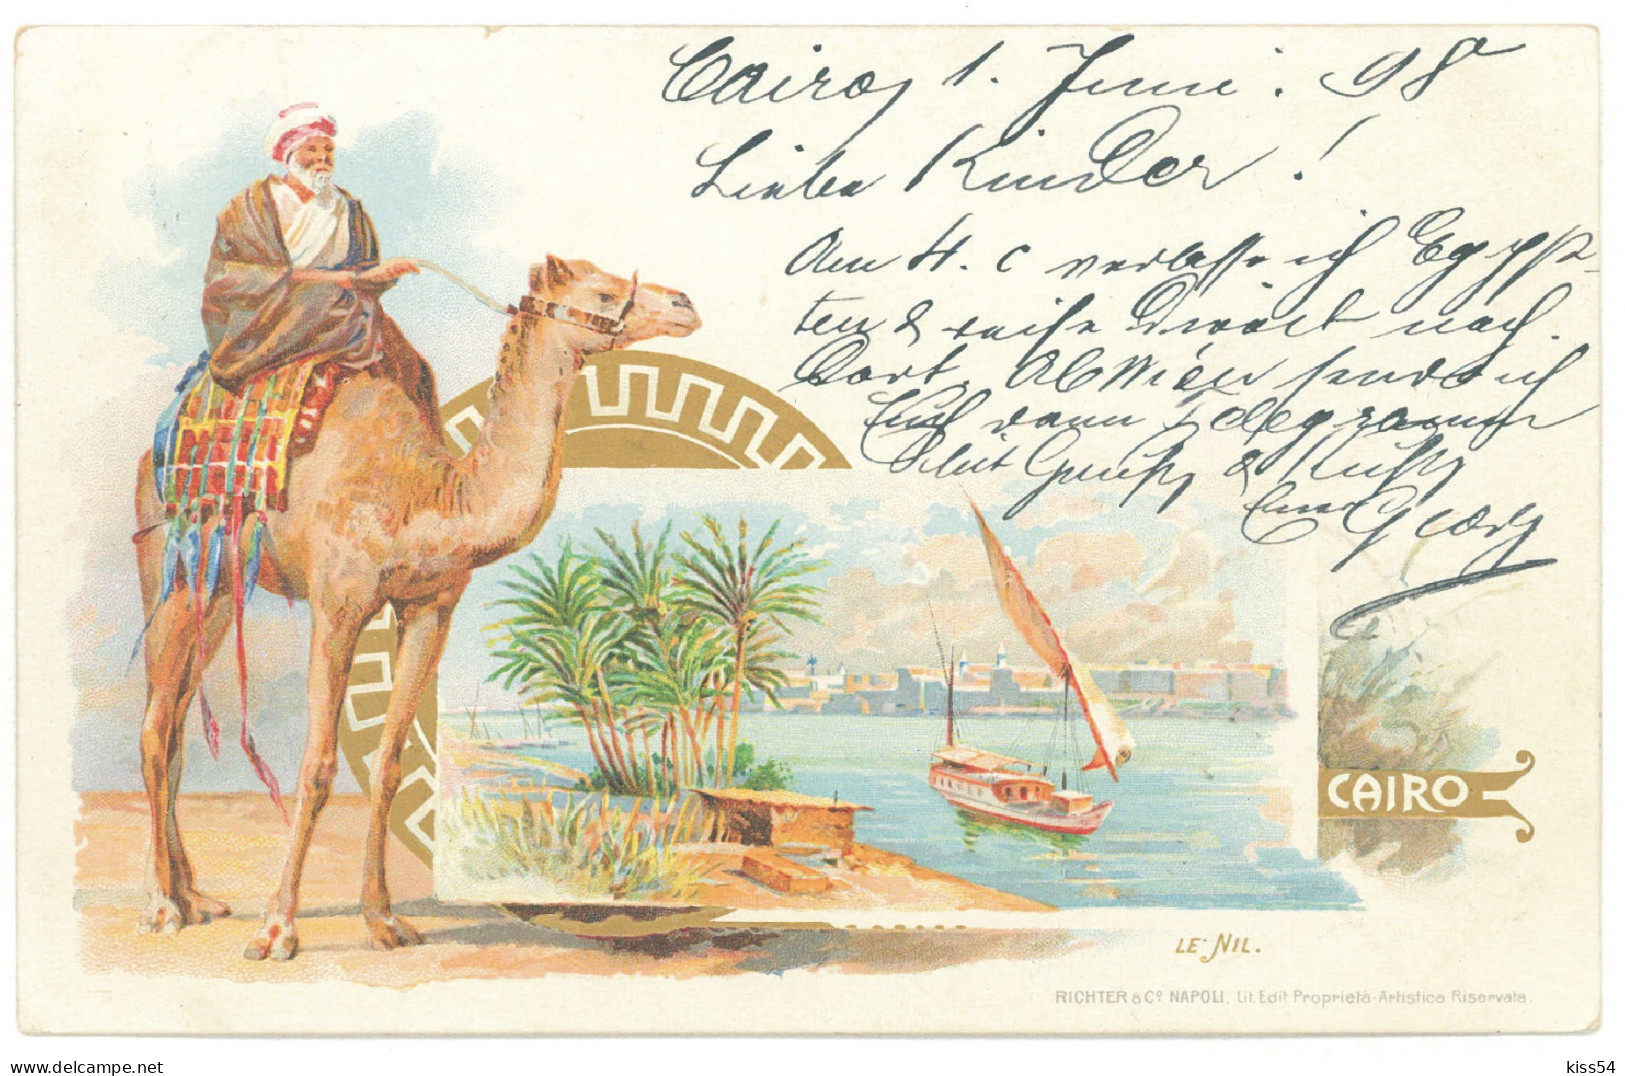 Cairo, 1. Juni. 98
Liebe Kinder!
Am 4. c verlasse ich Egyp-
ten & reise direct nach
dort. Ab Wien sende ich
Euch dann Telegramm
Mit Gruß & Kuß
Euer Georg
CAIRO
LE NIL.
RICHTER & Cº NAPOLI, Lit. Edit Proprietà Artistica Riservata.
kiss54